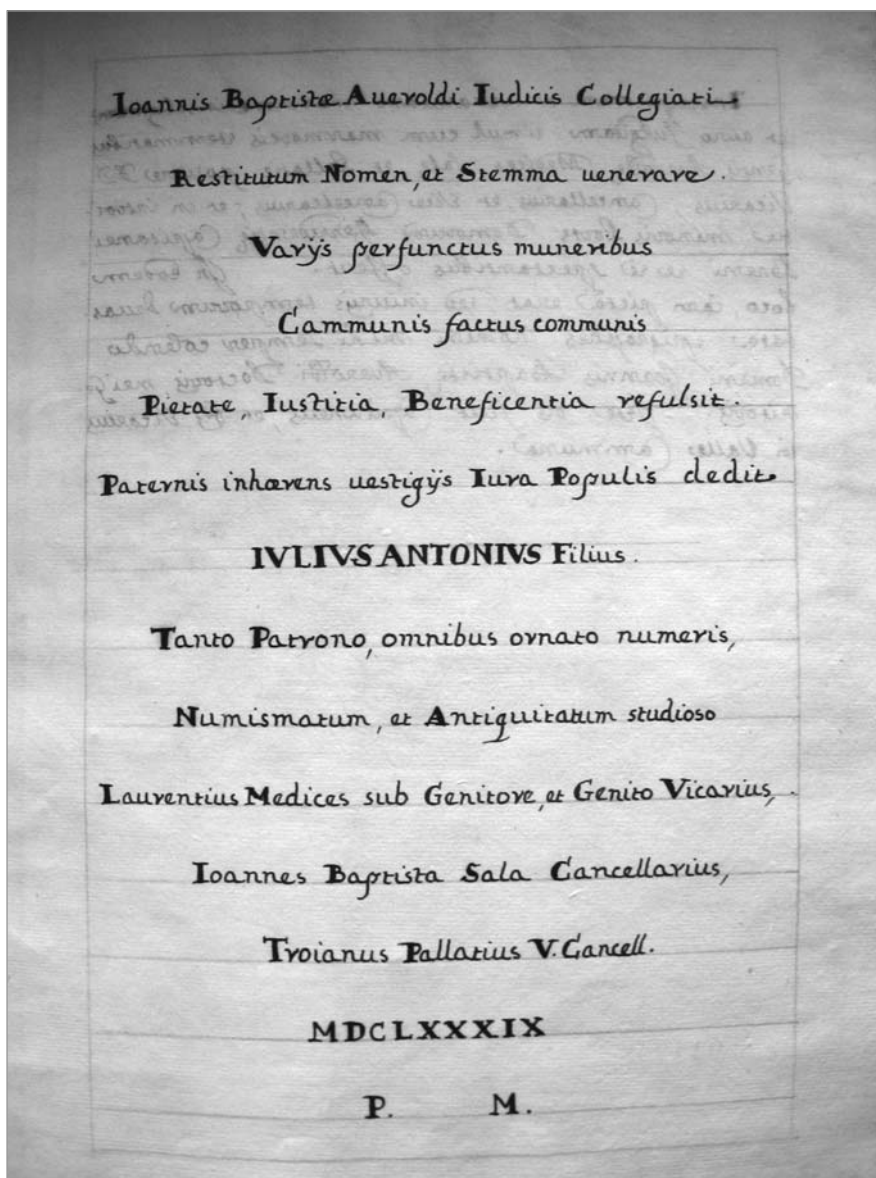 Ioannis Baptistæ Averoldi Iudicis Collegiati
Restitutum Nomen, et Stemma uenerare.
Varÿs perfunctus muneribus
Cammunis factus communis
Pietate, Iustitia, Beneficentia refulsit.
Paternis inhærens uestigÿs Iura Populis dedit
IVLIVS ANTONIVS Filius.
Tanto Patrono, omnibus ornato numeris,
Numismatum, et Antiquitatum studioso
Laurentius Medices sub Genitore, et Genito Vicarius,
Ioannes Baptista Sala Cancellarius,
Troianus Pallatius V. Cancell.
MDCLXXXIX
P. M.